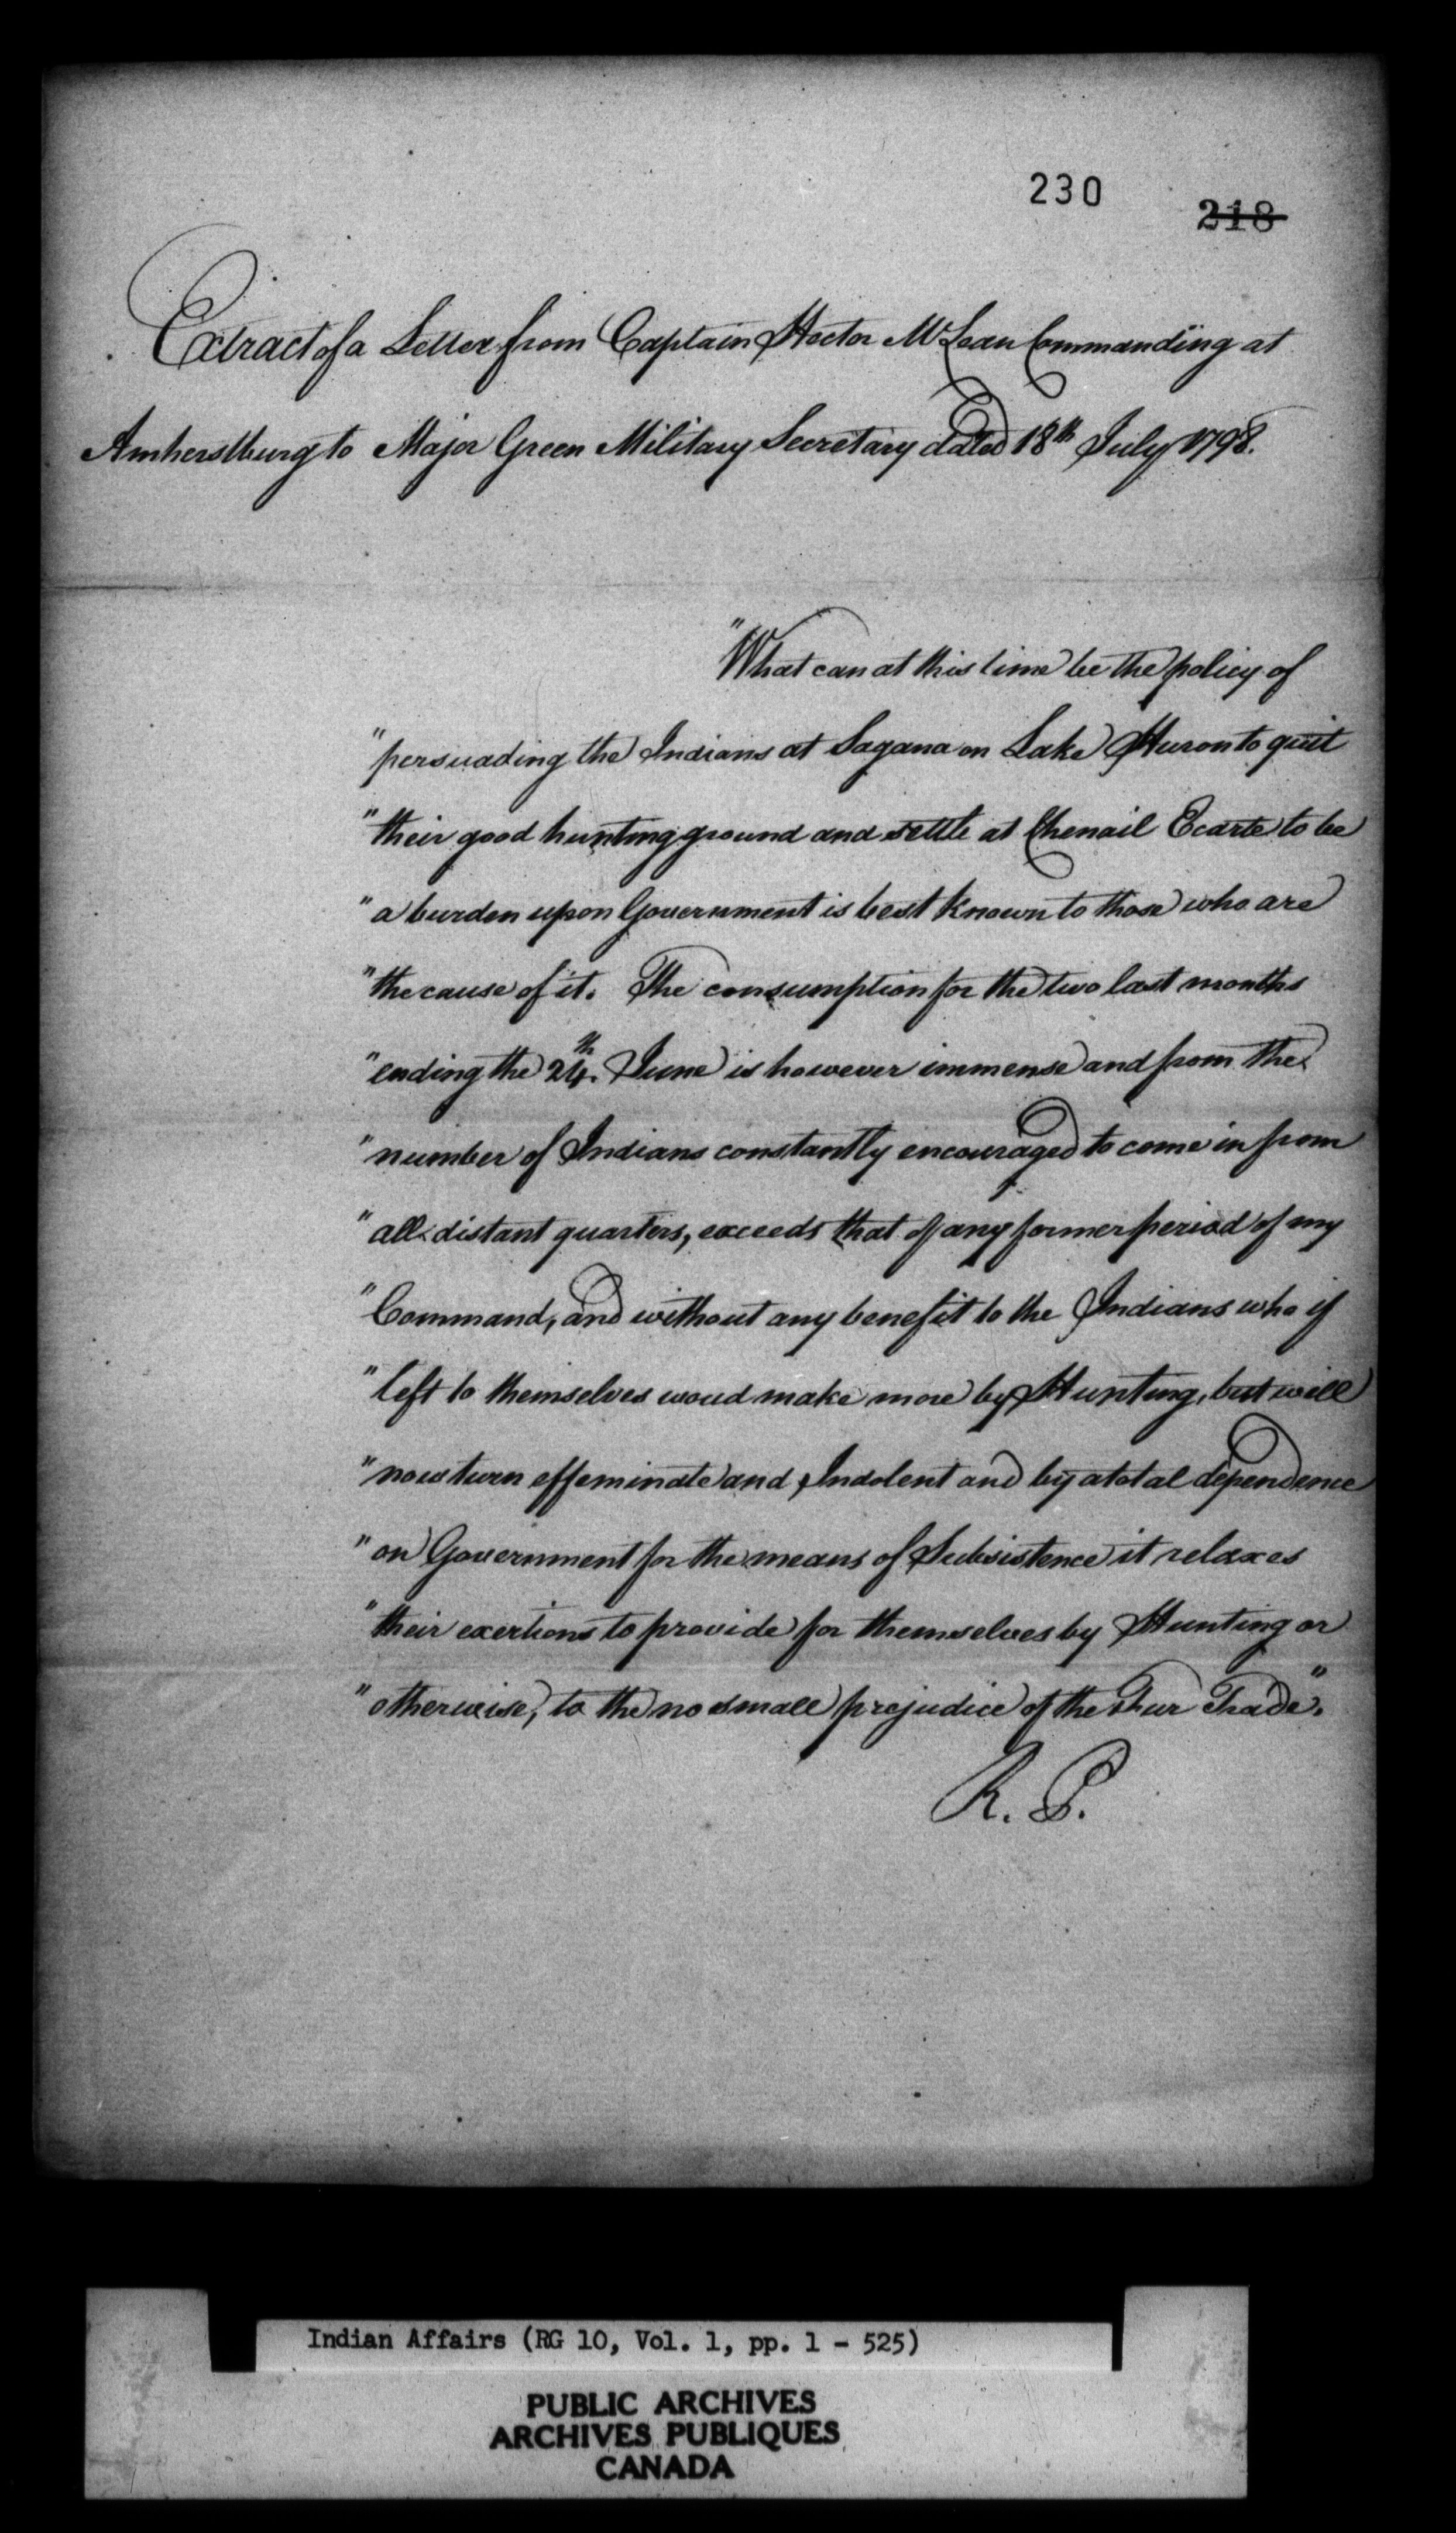 230
218
Extract of a Letter from Captain Hector McLean Commanding at
Amherstburg to Major Green Military Secretary dated 18th July 1798.
"What can at this time be the policy of
"persuading the Indians at Sagana on Lake Huron to quit
"their good hunting ground and settle at Chenail Ecarte to be
"a burden upon Government is best known to those who are
"the cause of it. The consumption for the two last months
"ending the 24th. June is however immense and from the
"number of Indians constantly encouraged to come in from
"all distant quarters, exceeds that of any former period of my
"Command, and without any benefit to the Indians who if
"left to themselves woud make more by Hunting, but will
"now turn effeminate and Indolent and by a total dependence
"on Government for the means of Subsistence it relaxes
"their exertions to provide for themselves by Hunting or
"otherwise, to the no small prejudice of the Fur Trade."
R. P.
Indian Affairs (RG 10, Vol. 1, pp. 1 - 525)
PUBLIC ARCHIVES
ARCHIVES PUBLIQUES
CANADA